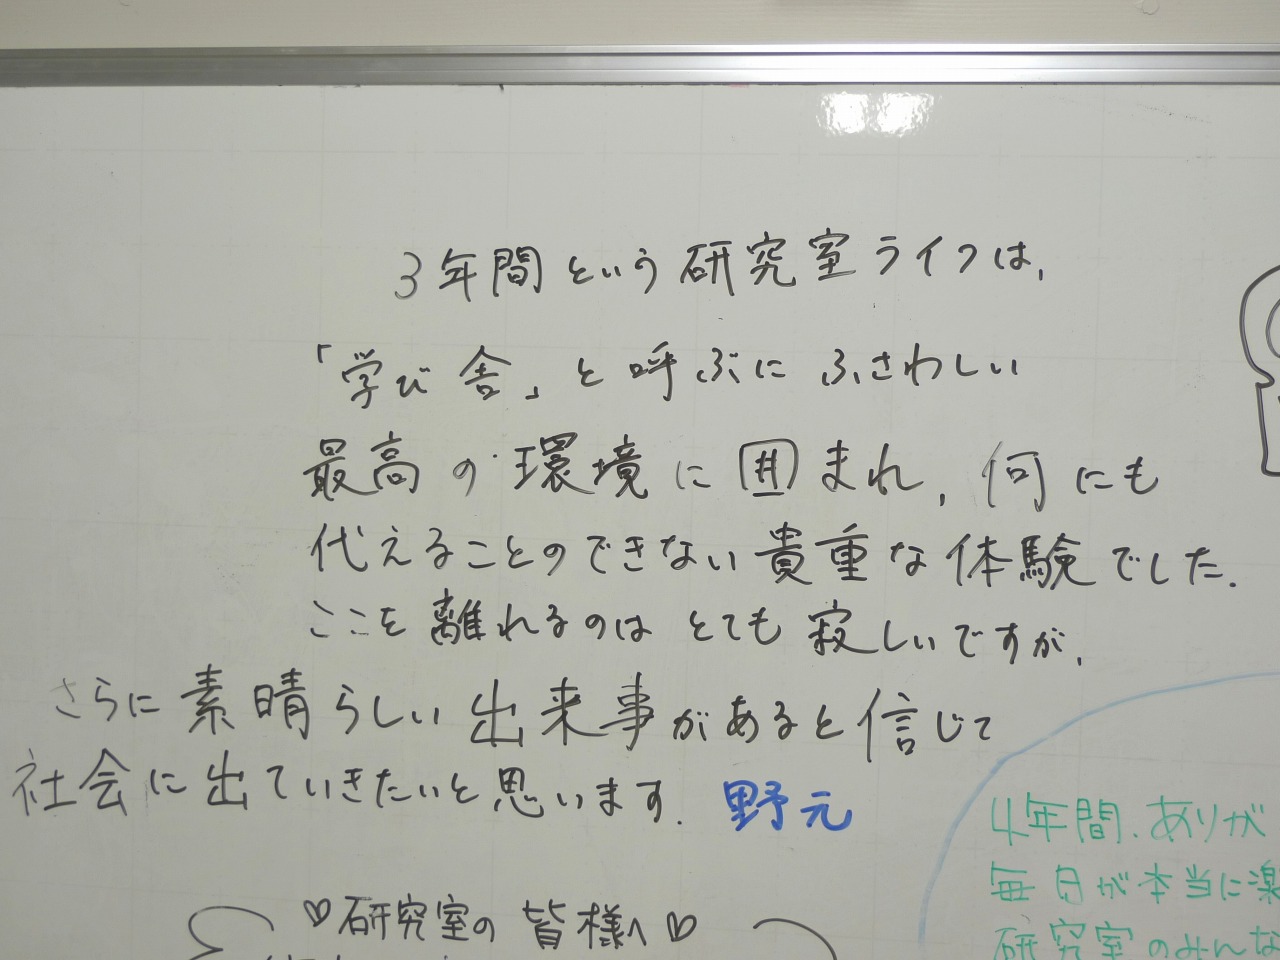 3年間という研究室ライフは,
「学び舎」と呼ぶにふさわしい
最高の環境に囲まれ,何にも
代えることのできない貴重な体験でした.
ここを離れるのはとても寂しいですが,
さらに素晴らしい出来事があると信じて
社会に出ていきたいと思います. 野元
♡研究室の皆様へ♡
4年間、ありが
毎日が本当に楽
研究室のみんな